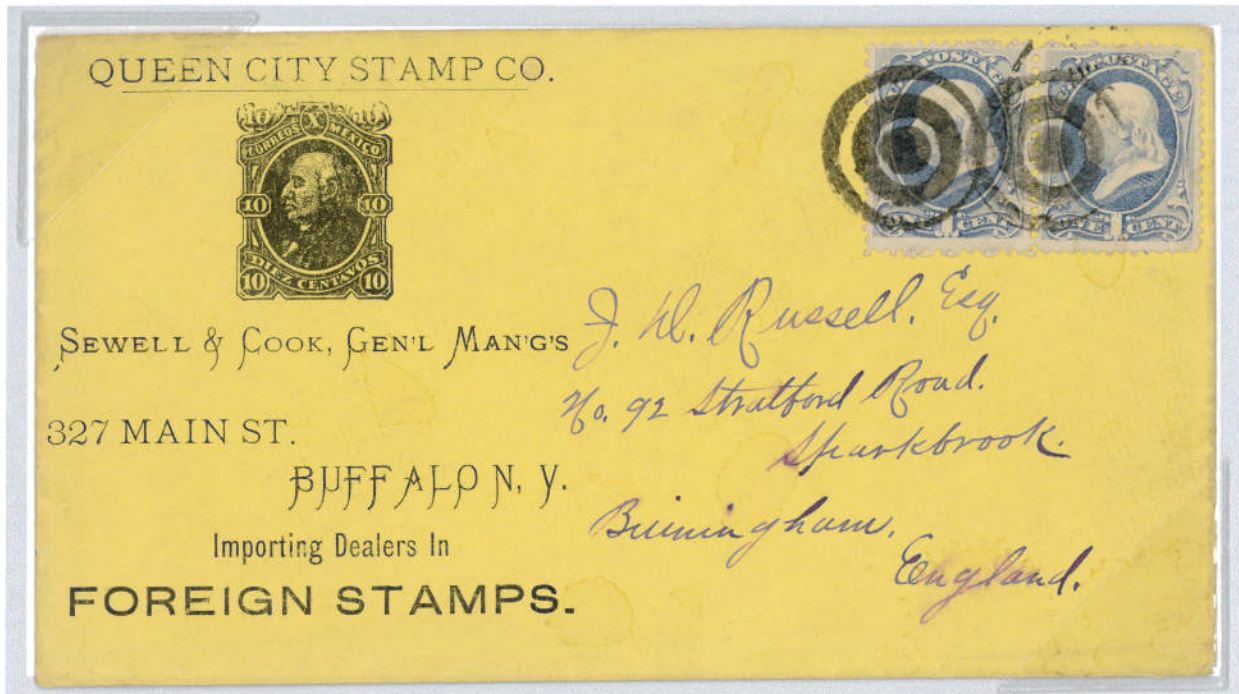 QUEEN CITY STAMP CO.
10 X 10
CORREOS MEXICO
10 10
DIEZ CENTAVOS
10 10
SEWELL & COOK, GEN'L MAN'G'S
327 MAIN ST.
BUFFALO N, Y.
Importing Dealers In
FOREIGN STAMPS.
POSTAGE
ONE 1 CENT
POSTAGE
ONE 1 CENT
J. W. Russell, Esq.
No. 92 Stratford Road.
Sparkbrook.
Birmingham.
England.